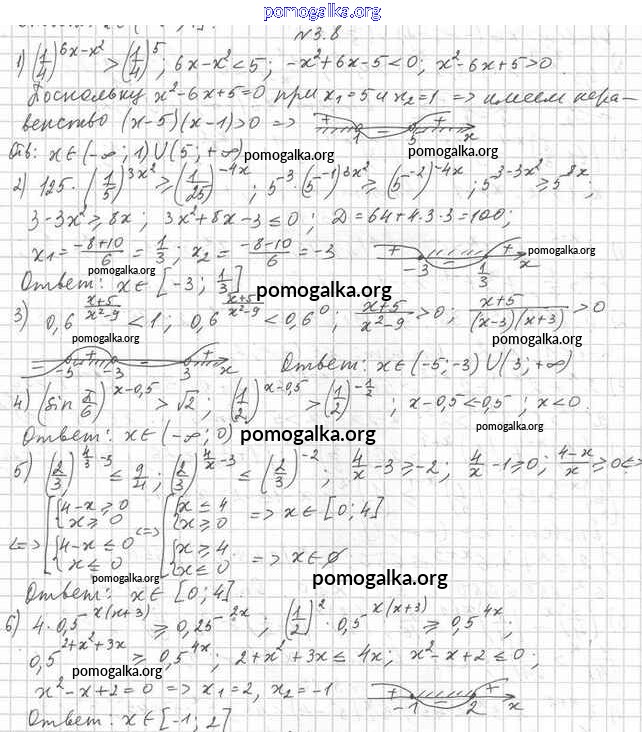 pomogalka.org
N 3.8
1) (1/4)^(6x-x²) > (1/4)^5 ; 6x-x²<5; -x²+6x-5<0; x²-6x+5>0
Поскольку x²-6x+5=0 при x₁=5 и x₂=1 => имеем нера-
венство (x-5)(x-1)>0 => + 1 - 5 + x
Отв: x∈(-∞; 1)∪(5; +∞) pomogalka.org pomogalka.org
2) 125·(1/5)^(3x²) ≥ (1/25)^(-4x) ; 5^(-3)·(5^(-1))^(3x²) ≥ (5^(-2))^(-4x) ; 5^(3-3x²) ≥ 5^(8x) ;
3-3x² ≥ 8x ; 3x²+8x-3 ≤ 0 ; D=64+4·3·3=100;
x₁= (-8+10)/6 = 1/3 ; x₂ = (-8-10)/6 = -3 + -3 - 1/3 + x pomogalka.org
pomogalka.org
Ответ: x∈[-3; 1/3] pomogalka.org
3) 0,6^((x+5)/(x²-9)) < 1 ; 0,6^((x+5)/(x²-9)) < 0,6^0 ; (x+5)/(x²-9) > 0 ; (x+5)/((x-3)(x+3)) > 0
pomogalka.org pomogalka.org
- -5 + -3 - 3 + x Ответ: x∈(-5;-3)∪(3;+∞)
4) (sin π/6)^(x-0,5) > √2 ; (1/2)^(x-0,5) > (1/2)^(-1/2) ; x-0,5<0,5 ; x<0.
Ответ: x∈(-∞; 0) pomogalka.org pomogalka.org
5) (2/3)^(4/3-3) ≤ 9/4 ; (2/3)^(4/x-3) ≤ (2/3)^(-2) ; 4/x-3 ≥ -2 ; 4/x-1 ≥ 0 ; (4-x)/x ≥ 0 <=>
<=> [ { 4-x ≥ 0 x ≥ 0 <=> [ { x ≤ 4 x ≥ 0 => x∈[0; 4]
{ 4-x ≤ 0 x ≤ 0 { x ≥ 4 x ≤ 0 => x∈∅
pomogalka.org pomogalka.org
Ответ: x∈[0; 4].
6) 4·0,5^(-x(x+3)) ≥ 0,25^(2x) ; (1/2)^2·0,5^(x(x+3)) ≥ 0,5^(4x) ;
0,5^(2+x²+3x) ≥ 0,5^(4x) ; 2+x²+3x ≤ 4x ; x²-x+2 ≤ 0 ;
pomogalka.org
x²-x+2=0 => x₁=2, x₂=-1 + -1 - 2 + x
Ответ: x∈[-1; 2]